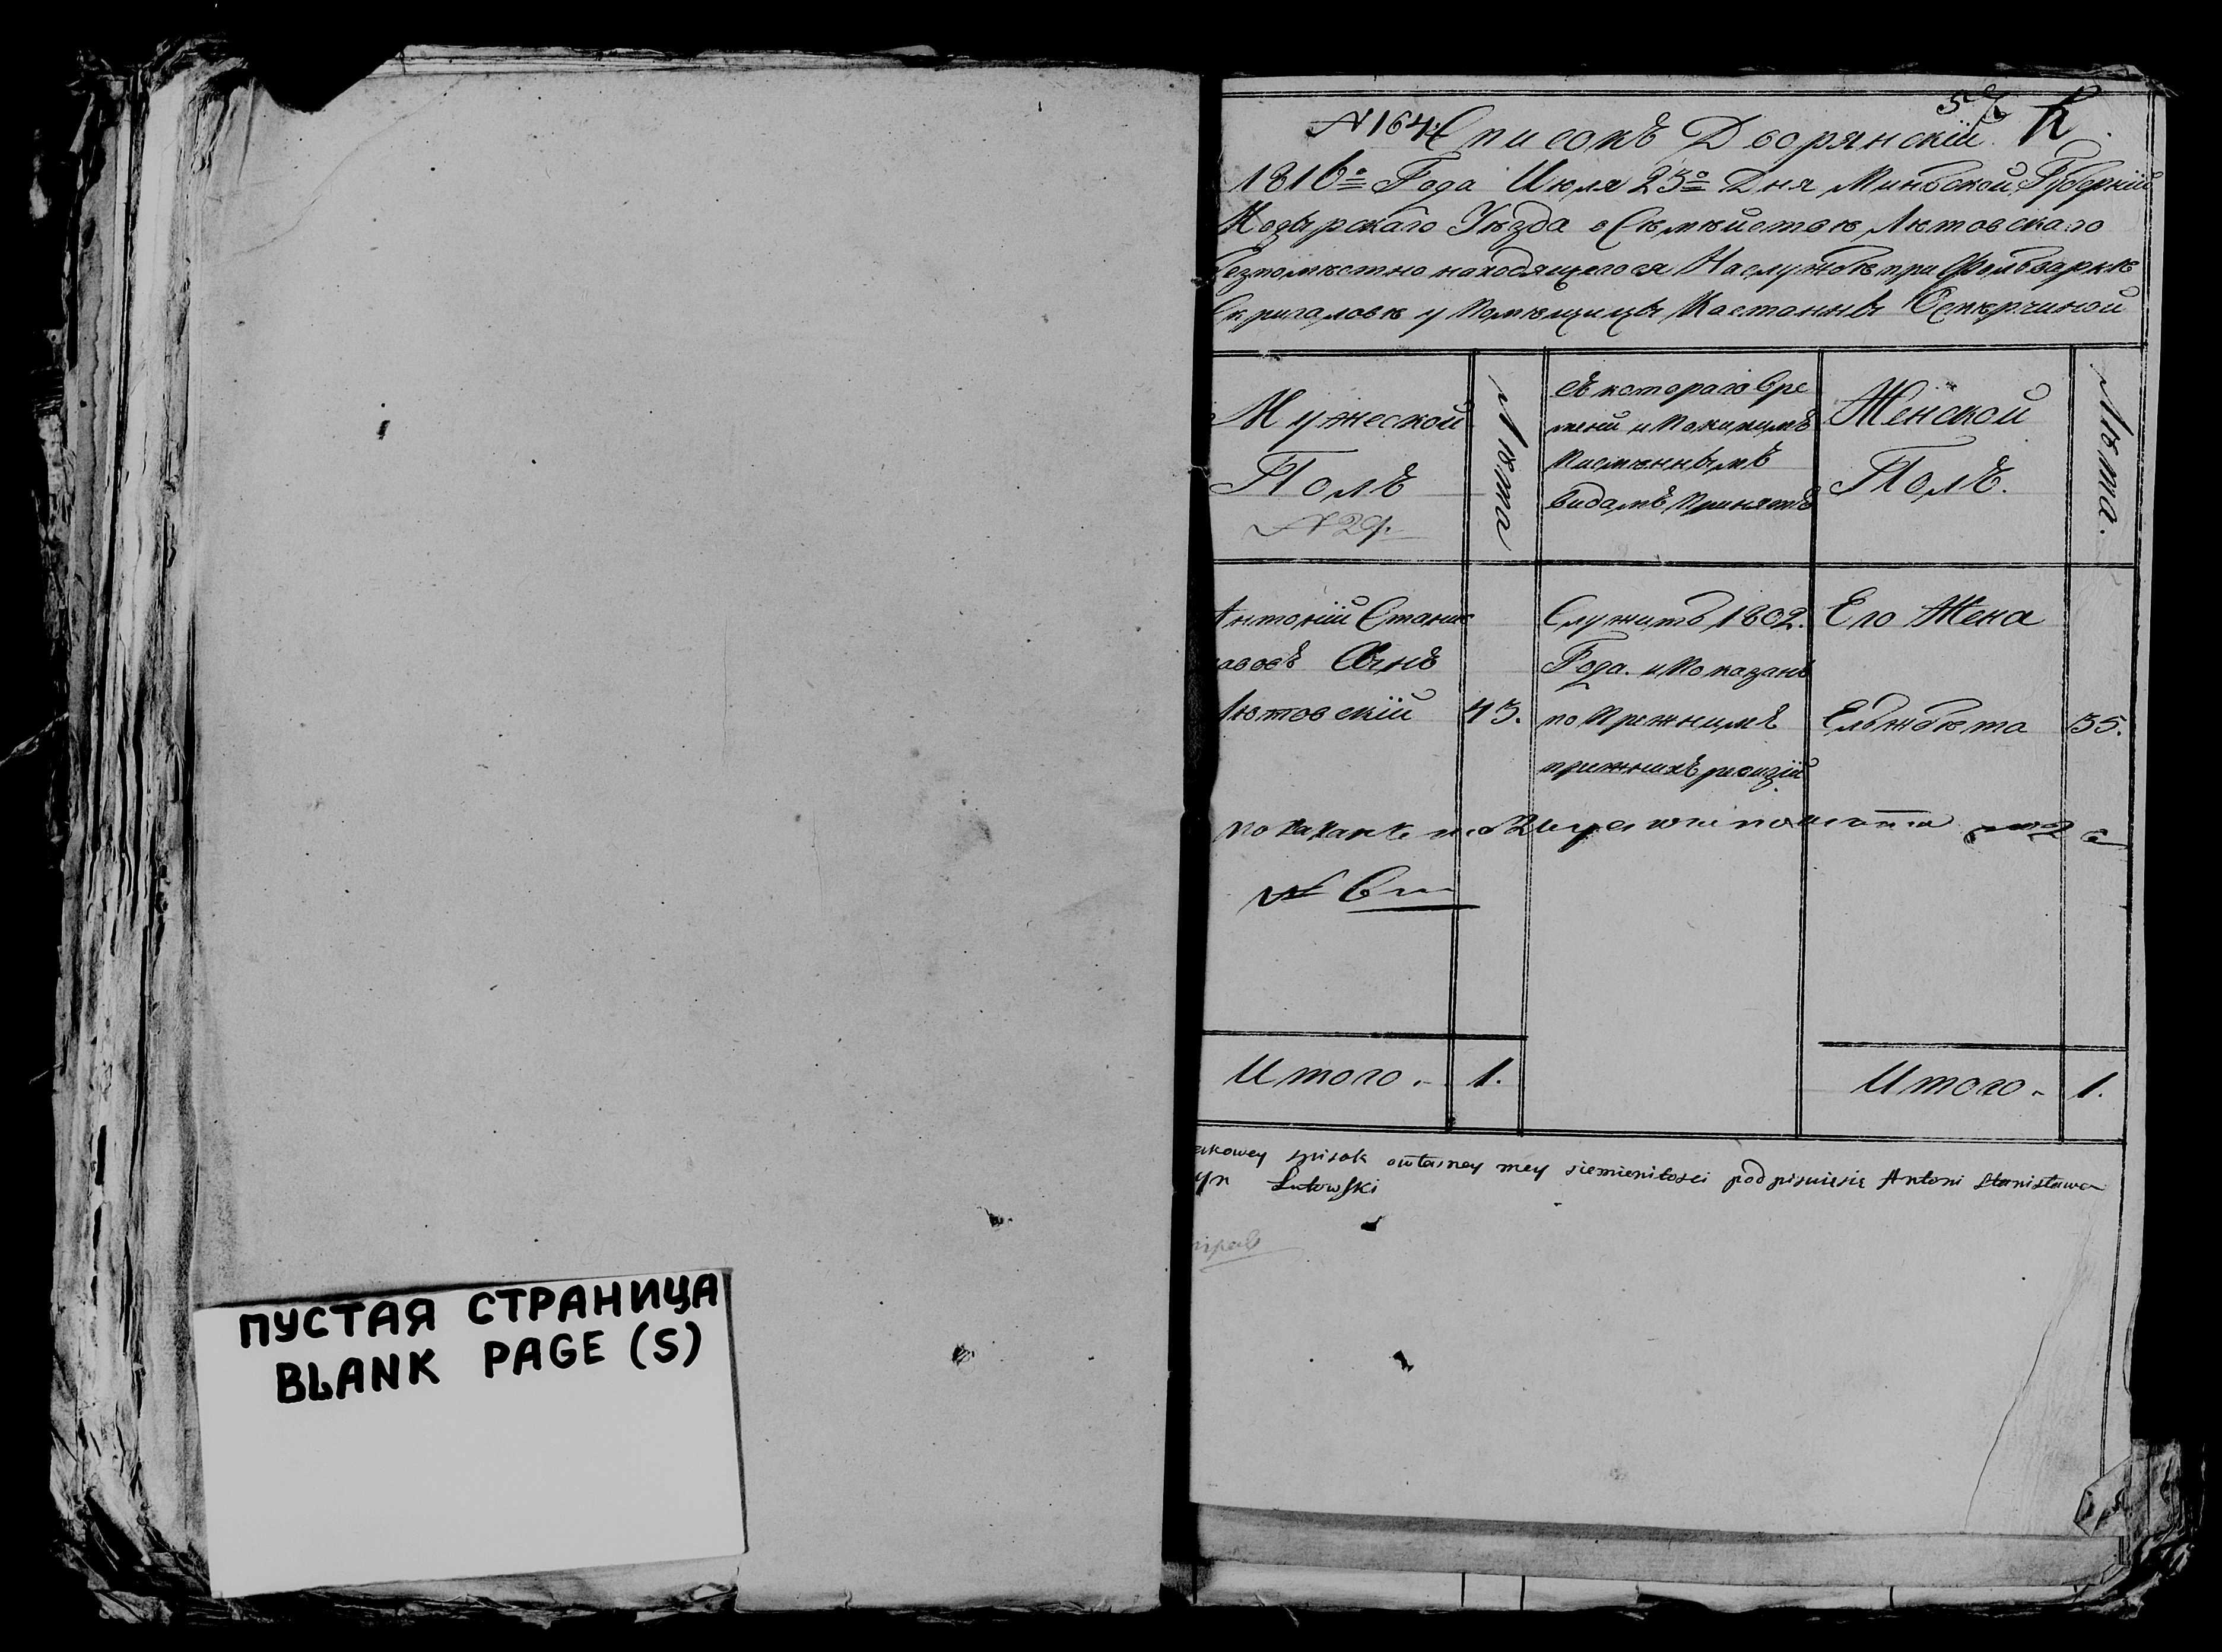 ПУСТАЯ СТРАНИЦА
BLANK PAGE (S)
57
№ 164. Списокъ Дворянскій.
1816º Года Июля 25º Дня Минской Губерніи
Мозырскаго Уѣзда о Сѣмѣйствѣ Лютовскаго
безпомѣстно находящегося На службѣ при Фольваркѣ
Скригаловѣ у Помѣщицы
Мужеской
Полъ
№ 29.
Лѣта
Съ котораго Вре
мени и Покакимъ
Писмѣннымъ
видамъ Принятъ
Женской
Полъ.
Лѣта.
Антоній Станис
лавовъ Сынъ
Лютовскій 43.
Служитъ 1802.
Года. и Показанъ
по Прежнимъ
прежнихъ ревизій
Его Жена
Ельжбѣта 35.
Итого. 1.
Итого. 1.
spisok podpisuiesie Antoni Stanisława
syn Lutowski